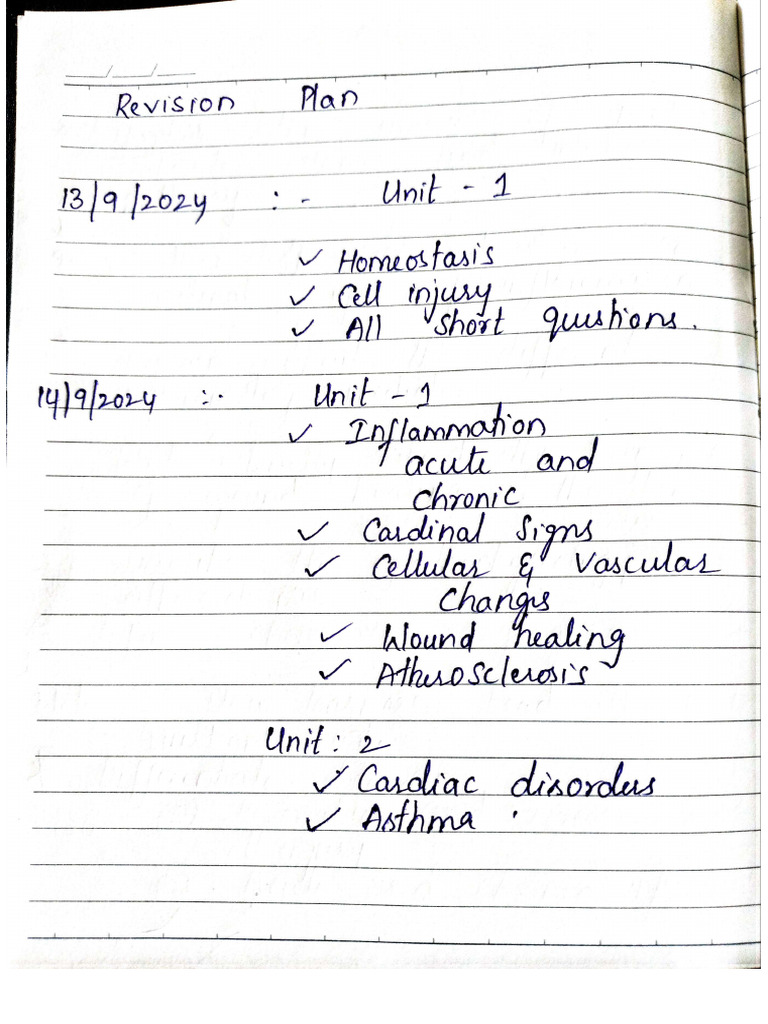 __/__/__
Revision Plan
13/9/2024 :- Unit - 1
✓ Homeostasis
✓ Cell injury
✓ All short questions.
14/9/2024 :- Unit - 1
✓ Inflammation
acute and
chronic
✓ Cardinal signs
✓ Cellular & Vascular
Changes
✓ Wound healing
✓ Atherosclerosis
Unit : 2
✓ Cardiac disorders
✓ Asthma .